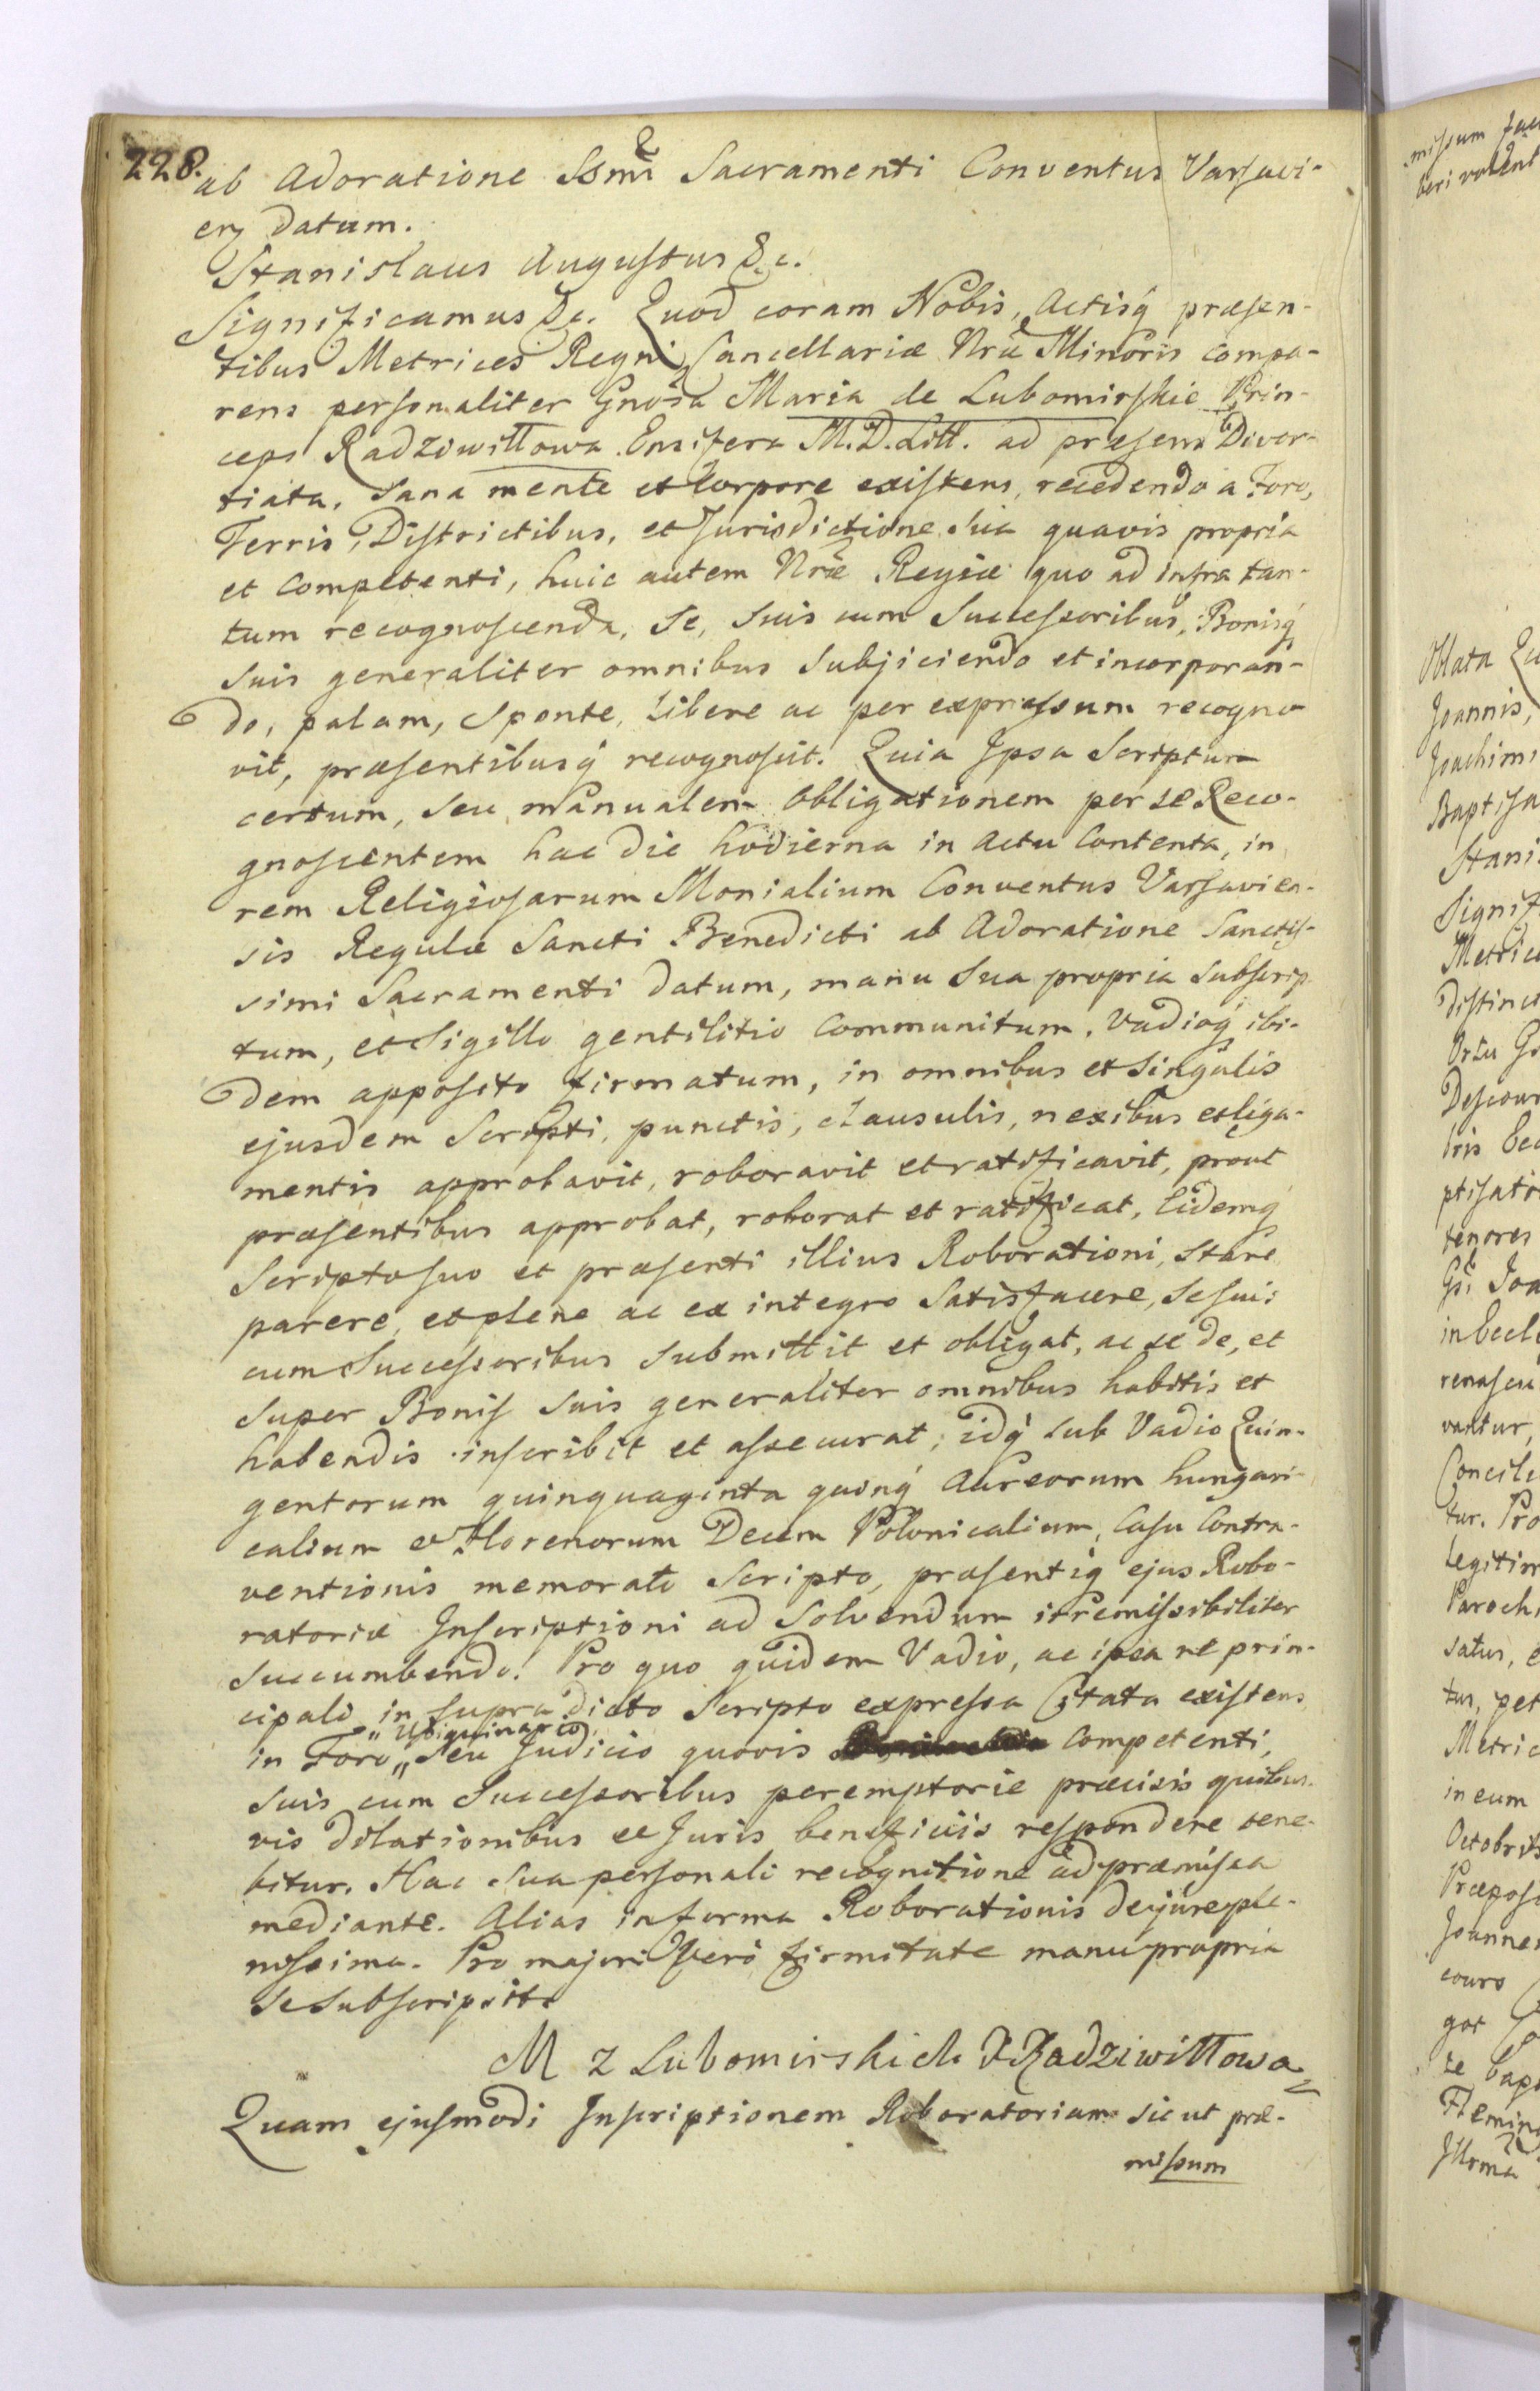 228.
ab Adoratione Ssmi Sacramenti Conventus Varsavi-
en, datum.
Stanislaus Augustus &c.
Significamus &c. Quod coram Nobis, Actisq́ præsen-
tibus Metrices Regni Cancellariæ Nræ Minoris compa-
rens personaliter Gnosa Maria de Lubomirskie Prin-
ceps Radziwiłłowa Ensifera M.D.Litt. ad præsens Divor-
tiata, sana mente et Corpore existens, recedendo a Foro,
Terris, Districtibus, et Jurisdictione sua quavis propria
et Competenti, huic autem Nræ Regiæ quo ad infra tan-
tum recognoscenda, se, suis cum Successoribus, Bonisq́
suis generaliter omnibus subjiciendo et incorporan-
do, palam, sponte, libere ac per expressum recogno-
vit, præsentibusq́ recognoscit. Quia Ipsa Scriptum
certum, seu manualem Obligationem per se Reco-
gnoscentem hac die hodierna in Actu Contenta, in
rem Religiosarum Monialium Conventus Varsavien-
sis Regulæ Sancti Benedicti ab Adoratione Sanctis-
simi Sacramenti datum, manu sua propria subscrip-
tum, et Sigillo gentilitio Communitum, Vadioq́ ibi-
dem apposito firmatum, in omnibus et singulis
ejusdem Scripti, punctis, clausulis, nexibus et liga-
mentis approbavit, roboravit et ratificavit, prout
præsentibus approbat, roborat et ratificat, Eidemq́
Scripto suo et præsenti illius Roborationi, stare
parere, et plene ac ex integro satisfacere, se suis
cum Successoribus submittit et obligat, ac se de, et
super Bonis suis generaliter omnibus habitis et
habendis inscribit et assecurat; idq́ sub Vadio Quin-
gentorum quinquaginta quinq́ Aureorum hungari-
calium et Florenorum Decem Polonicalium, Casu Contra-
ventionis memorato Scripto, præsentiq́ ejus Robo-
ratoriæ Inscriptioni ad solvendum irremissibiliter
succumbendo. Pro quo quidem Vadio, ac ipsa re prin-
cipali in supra dicto Scripto expressa Citata existens
in Foro „ Ubiquinario „ seu Judicio quovis Competenti,
suis cum Successoribus peremptorie præcisis quibus-
vis dilationibus et Juris beneficiis respondere tene-
bitur. Hac sua personali recognitione ad præmissa
mediante. Alias in forma Roborationis de jure ple-
nissima. Pro majori vero firmitate manu propria
se subscripsit.
M z Lubomirskich X Radziwiłłowa
Quam ejusmodi Inscriptionem Roboratoriam sicut præ-
missum
missum
Oblata
Joannis,
Joachimi
Stani
Signif
Metrice
distinct
tenores
in Eccl
vantur,
Concili
tur. Pro
Parochi
satus,
tus, pet
Metric
in eum
Octobris
Præposi
Joannes